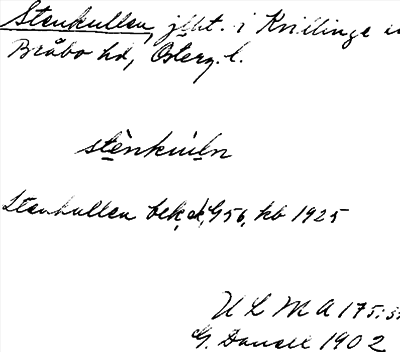 Stenkullen, jbht. i Kvillinge
Bråbo hd, Österg. l.
stènkúln
Stenkullen bek, G56, kb 1925
U L M A 175:
G. Danell 1902